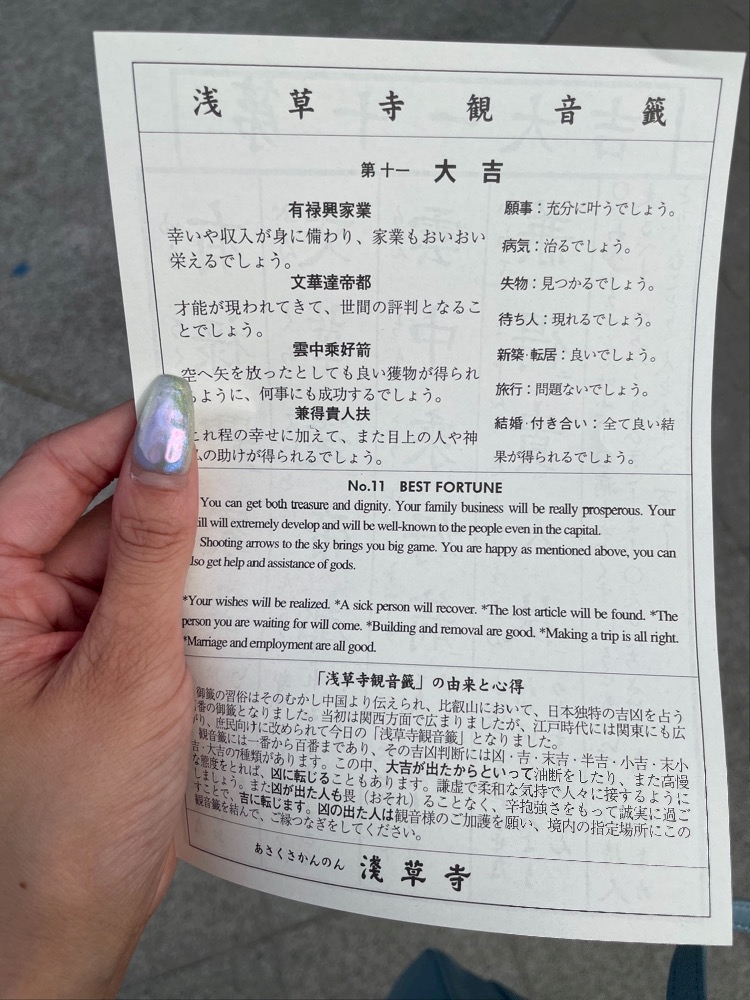 浅草寺観音籤
第十一 大吉
有禄興家業
幸いや収入が身に備わり、家業もおいおい
栄えるでしょう。
文華達帝都
才能が現われてきて、世間の評判となるこ
とでしょう。
雲中乗好箭
空へ矢を放ったとしても良い獲物が得られ
ように、何事にも成功するでしょう。
兼得貴人扶
これ程の幸せに加えて、また目上の人や神
の助けが得られるでしょう。
願事：充分に叶うでしょう。
病気：治るでしょう。
失物：見つかるでしょう。
待ち人：現れるでしょう。
新築·転居：良いでしょう。
旅行：問題ないでしょう。
結婚·付き合い：全て良い結
果が得られるでしょう。
No.11 BEST FORTUNE
You can get both treasure and dignity. Your family business will be really prosperous. Your
will extremely develop and will be well-known to the people even in the capital.
Shooting arrows to the sky brings you big game. You are happy as mentioned above, you can
also get help and assistance of gods.
*Your wishes will be realized. *A sick person will recover. *The lost article will be found. *The
person you are waiting for will come. *Building and removal are good. *Making a trip is all right.
*Marriage and employment are all good.
「浅草寺観音籤」の由来と心得
御籤の習俗はそのむかし中国より伝えられ、比叡山において、日本独特の吉凶を占う
番の御籤となりました。当初は関西方面で広まりましたが、江戸時代には関東にも広
がり、庶民向けに改められて今日の「浅草寺観音籤」となりました。
観音籤には一番から百番まであり、その吉凶判断には凶・吉・末吉・半吉・小吉・末小
吉・大吉の7種類があります。この中、大吉が出たからといって油断をしたり、また高慢
な態度をとれば、凶に転じることもあります。謙虚で柔和な気持で人々に接するように
しましょう。また凶が出た人も畏（おそれ）ることなく、辛抱強さをもって誠実に過ご
すことで、吉に転じます。凶の出た人は観音様のご加護を願い、境内の指定場所にこの
観音籤を結んで、ご縁つなぎをしてください。
あさくさかんのん 淺草寺